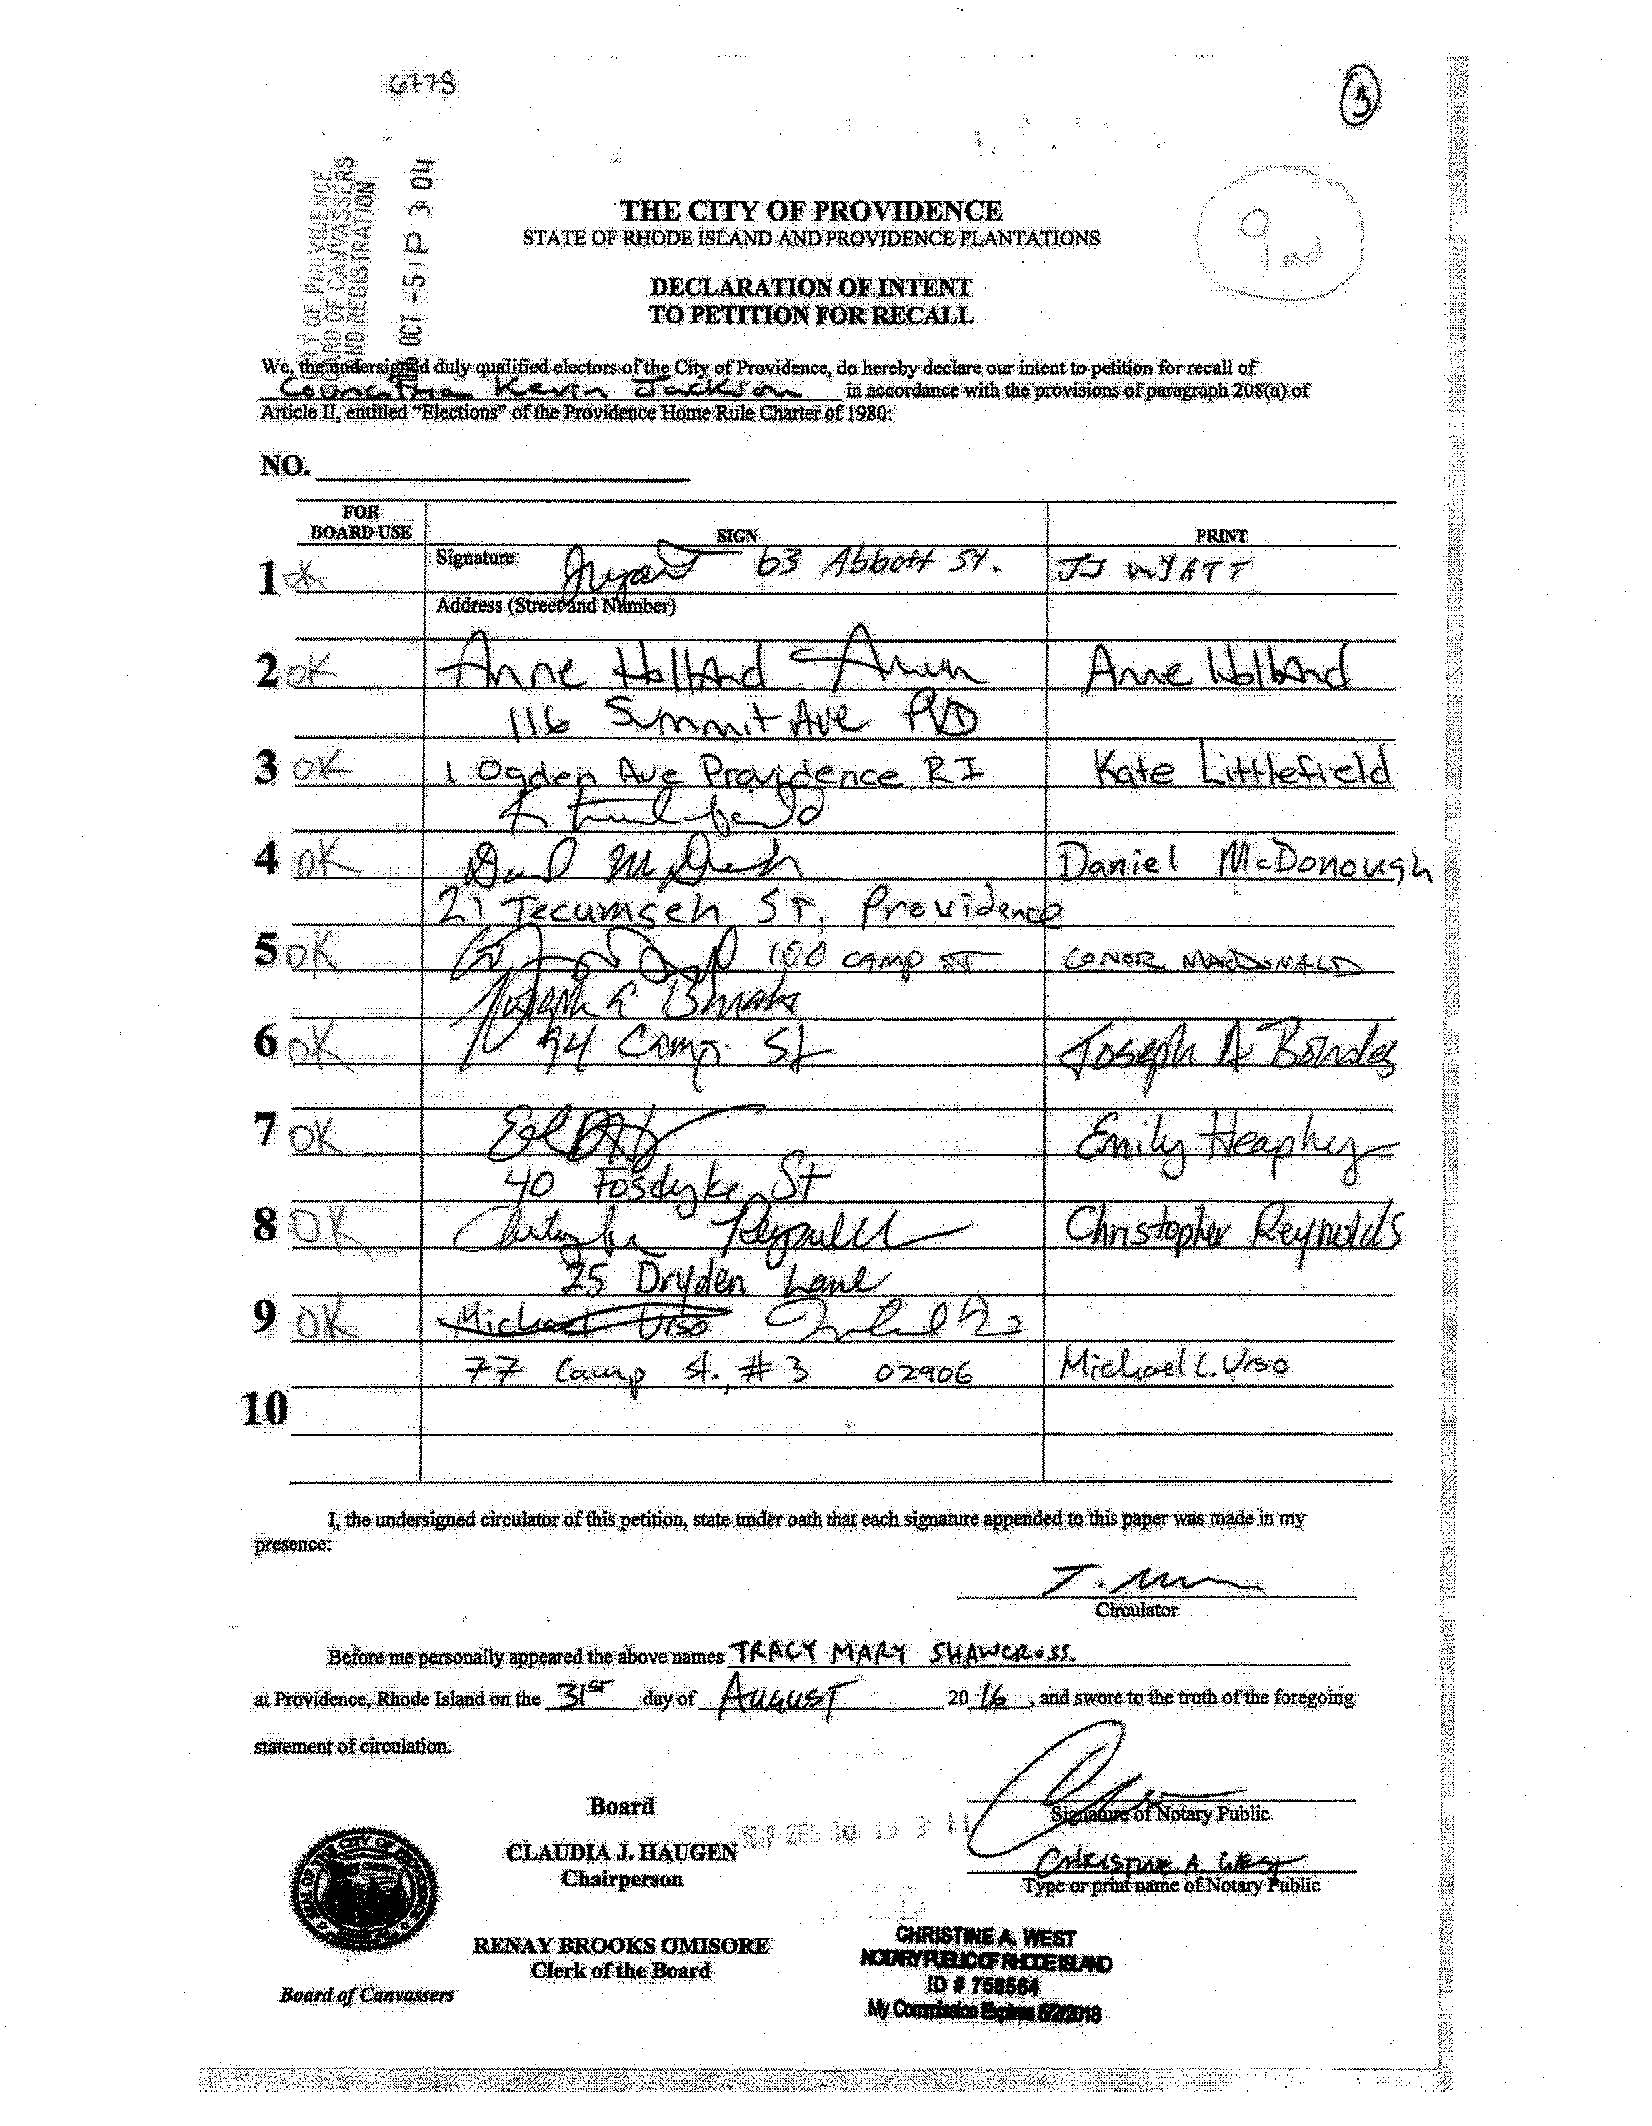 THE CITY OF PROVIDENCE
STATE OF RHODE ISLAND AND PROVIDENCE PLANTATIONS
DECLARATION OF INTENT
TO PETITION FOR RECALL
OCT -5 P 3 04
We, the undersigned duly qualified electors of the City of Providence, do hereby declare our intent to petition for recall of
Councilman Kevin Jackson in accordance with the provisions of paragraph 208(a) of
Article II, entitled "Elections" of the Providence Home Rule Charter of 1980:
NO.
FOR
BOARD USE SIGN PRINT
1 Signature 63 Abbott St. JJ WYATT
Address (Street and Number)
2 OK Anne Holland Anne Holland
116 Summit Ave PVD
3 OK 1 Ogden Ave Providence RI Kate Littlefield
4 OK Daniel McDonough
21 Tecumseh ST, Providence
5 OK 100 CAMP ST CONOR MACDONALD
6 OK 94 Camp St Joseph A
7 OK Emily Heaphey
40 Fosdyke St
8 OK Christopher Reynolds
25 Dryden Lane
9 OK Michael Urso
77 Camp St. #3 02906 Michael C. Urso
10
I, the undersigned circulator of this petition, state under oath that each signature appended to this paper was made in my
presence:
Circulator
Before me personally appeared the above names TRACY MARY SHAWCROSS.
at Providence, Rhode Island on the 31ST day of AUGUST 20 16, and swore to the truth of the foregoing
statement of circulation.
Signature of Notary Public
CHRISTINE A. WEST
Type or print name of Notary Public
Board
CLAUDIA J. HAUGEN
Chairperson
RENAY BROOKS OMISORE
Clerk of the Board
Board of Canvassers
CHRISTINE A. WEST
NOTARY PUBLIC OF RHODE ISLAND
ID # 758564
My Commission Expires